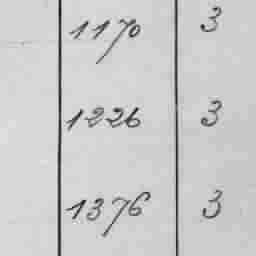 1170 3
1226 3
1376 3